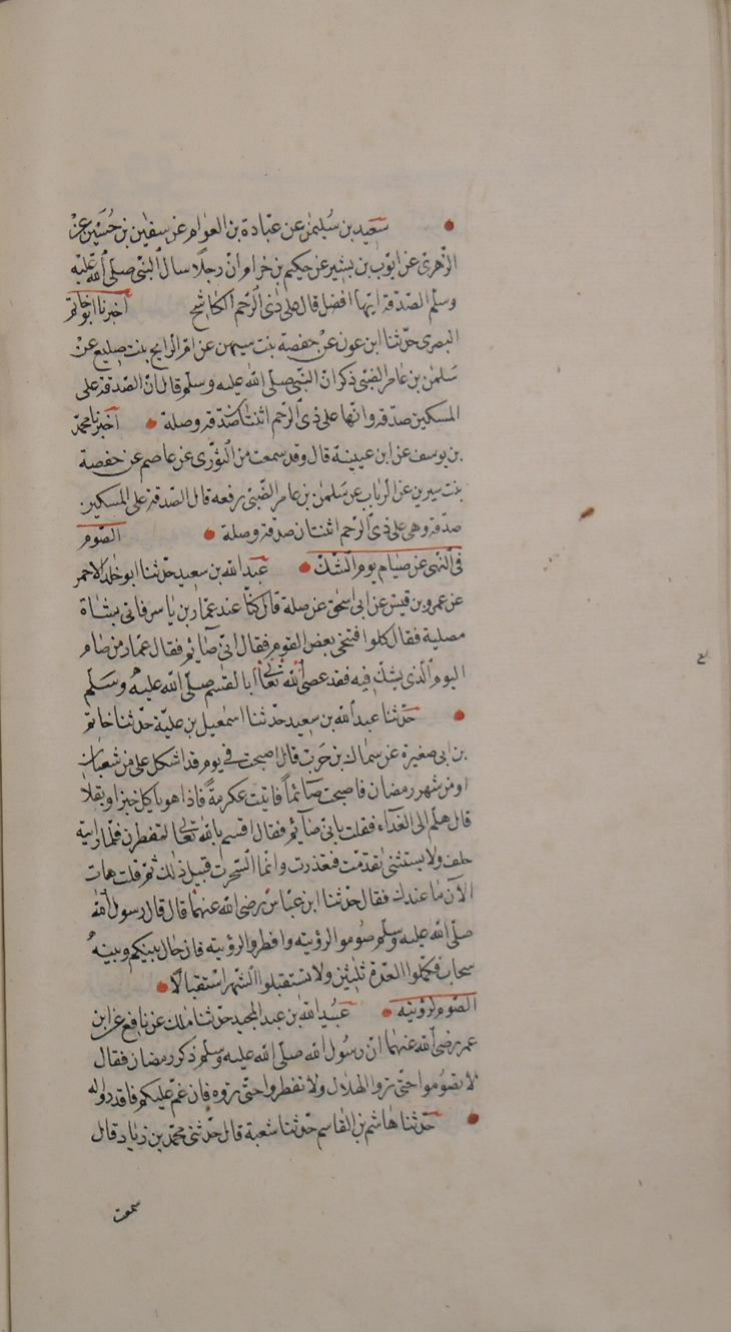 سعيد بن سليمن عن عبادة بن العوام عن سفين بن حسين عن
الزهرى عن ايوب بن بشير عن حكيم بن خزام ان رجلا سال النبى صلى الله عليه
وسلم الصدقة ايها افضل قال على ذى الرحم الكاشح اخبرنا ابو حاتم
البصرى حدثنا ابن عون عن حفصة بنت سيرين عن ام الرايح بنت صليع عن
سلمن بن عامر الضبى ذكر ان النبى صلى الله عليه وسلم قال ان الصدقة على
المسكين صدقة وانها على ذى الرحم اثنتان صدقة وصلة اخبرنا محمد
بن يوسف عن ابن عيينة قال وقد سمعت من الثورى عن عاصم عن حفصة
بنت سيرين عن الرباب عن سلمن بن عامر الضبى رفعه قال الصدقة على المسكين
صدقة وهى على ذى الرحم اثنتان صدقة وصلة الصوم
فى النهى عن صيام يوم الشك عبد الله بن سعيد حدثنا ابو خالد الاحمر
عن عمرو بن قيس عن ابى اسحق عن صلة قال كنا عند عمار بن ياسر فاتى بشاة
مصلية فقال كلوا فتنحى بعض القوم فقال انى صائم فقال عمار من صام
اليوم الذى يشك فيه فقد عصى الله تعالى ابا القسم صلى الله عليه وسلم
حدثنا عبد الله بن سعيد حدثنا اسمعيل بن علية حدثنا حاتم
بن ابى صغيرة عن سماك بن حرب قال اصبحت فى يوم قد اشكل على من شعبان
او من شهر رمضان فاصبحت صائما فاتيت عكرمة فاذا هو ياكل خبزا وبقلا
قال هلم الى الغداء فقلت بانى صايم فقال اقسم بالله تعالى لتفطرن فلما رايته
حلف ولا يستثنى تقدمت فعذرت وانما تسحرت قبيل ذلك ثم قلت هات
الآن ما عندك فقال حدثنا ابن عباس رضى الله عنهما قال قال رسول الله
صلى الله عليه وسلم صوموا لرؤيته وافطروا لرؤيته فان حال بينكم وبينه
سحاب فكملوا العدة ثلثين ولا تستقبلوا الشهر استقبالا
الصوم لرؤيته عبيد الله بن عبد المجيد حدثنا ملك عن نافع عن ابن
عمر رضى الله عنهما ان رسول الله صلى الله عليه وسلم ذكر رمضان فقال
لا تصوموا حتى تروا الهلال ولا تفطروا حتى تروه فان غم عليكم فاقدروا له
حدثنا هاشم بن القاسم حدثنا شعبة قال حدثنى محمد بن زياد قال
سمعت